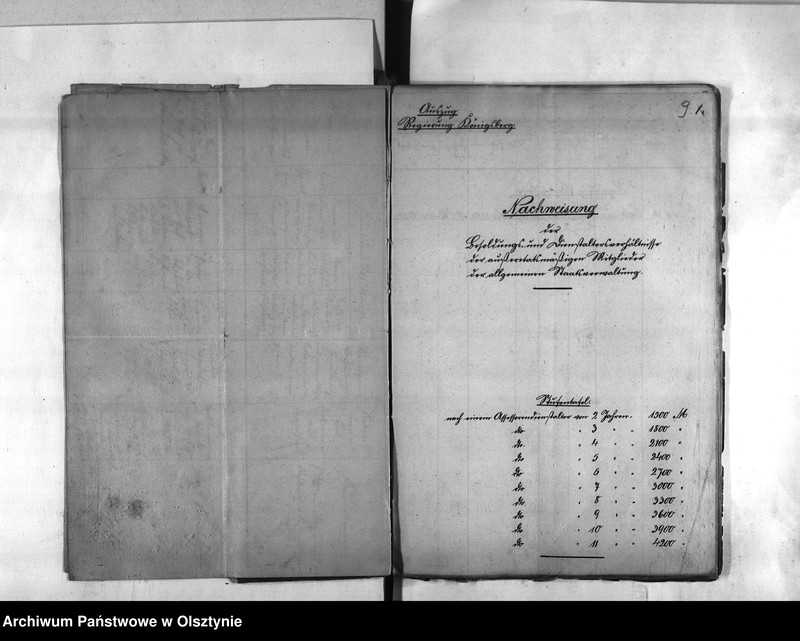 91.
Auszug
Regierung Königsberg.
Nachweisung
der
Besoldungs- und Dienstaltersverhältnisse
der außeretatsmäßigen Mitglieder
der allgemeinen Staatsverwaltung.
Stufentafel:
nach einem Assessorendienstalter von 2 Jahren. 1500 M
do " 3 " " 1800 "
do. " 4 " " 2100 "
do " 5 " " 2400 "
do " 6 " " 2700 "
do " 7 " " 3000 "
do. " 8 " " 3300 "
do " 9 " " 3600 "
do " 10 " " 3900 "
do " 11 " " 4200 "
Archiwum Państwowe w Olsztynie